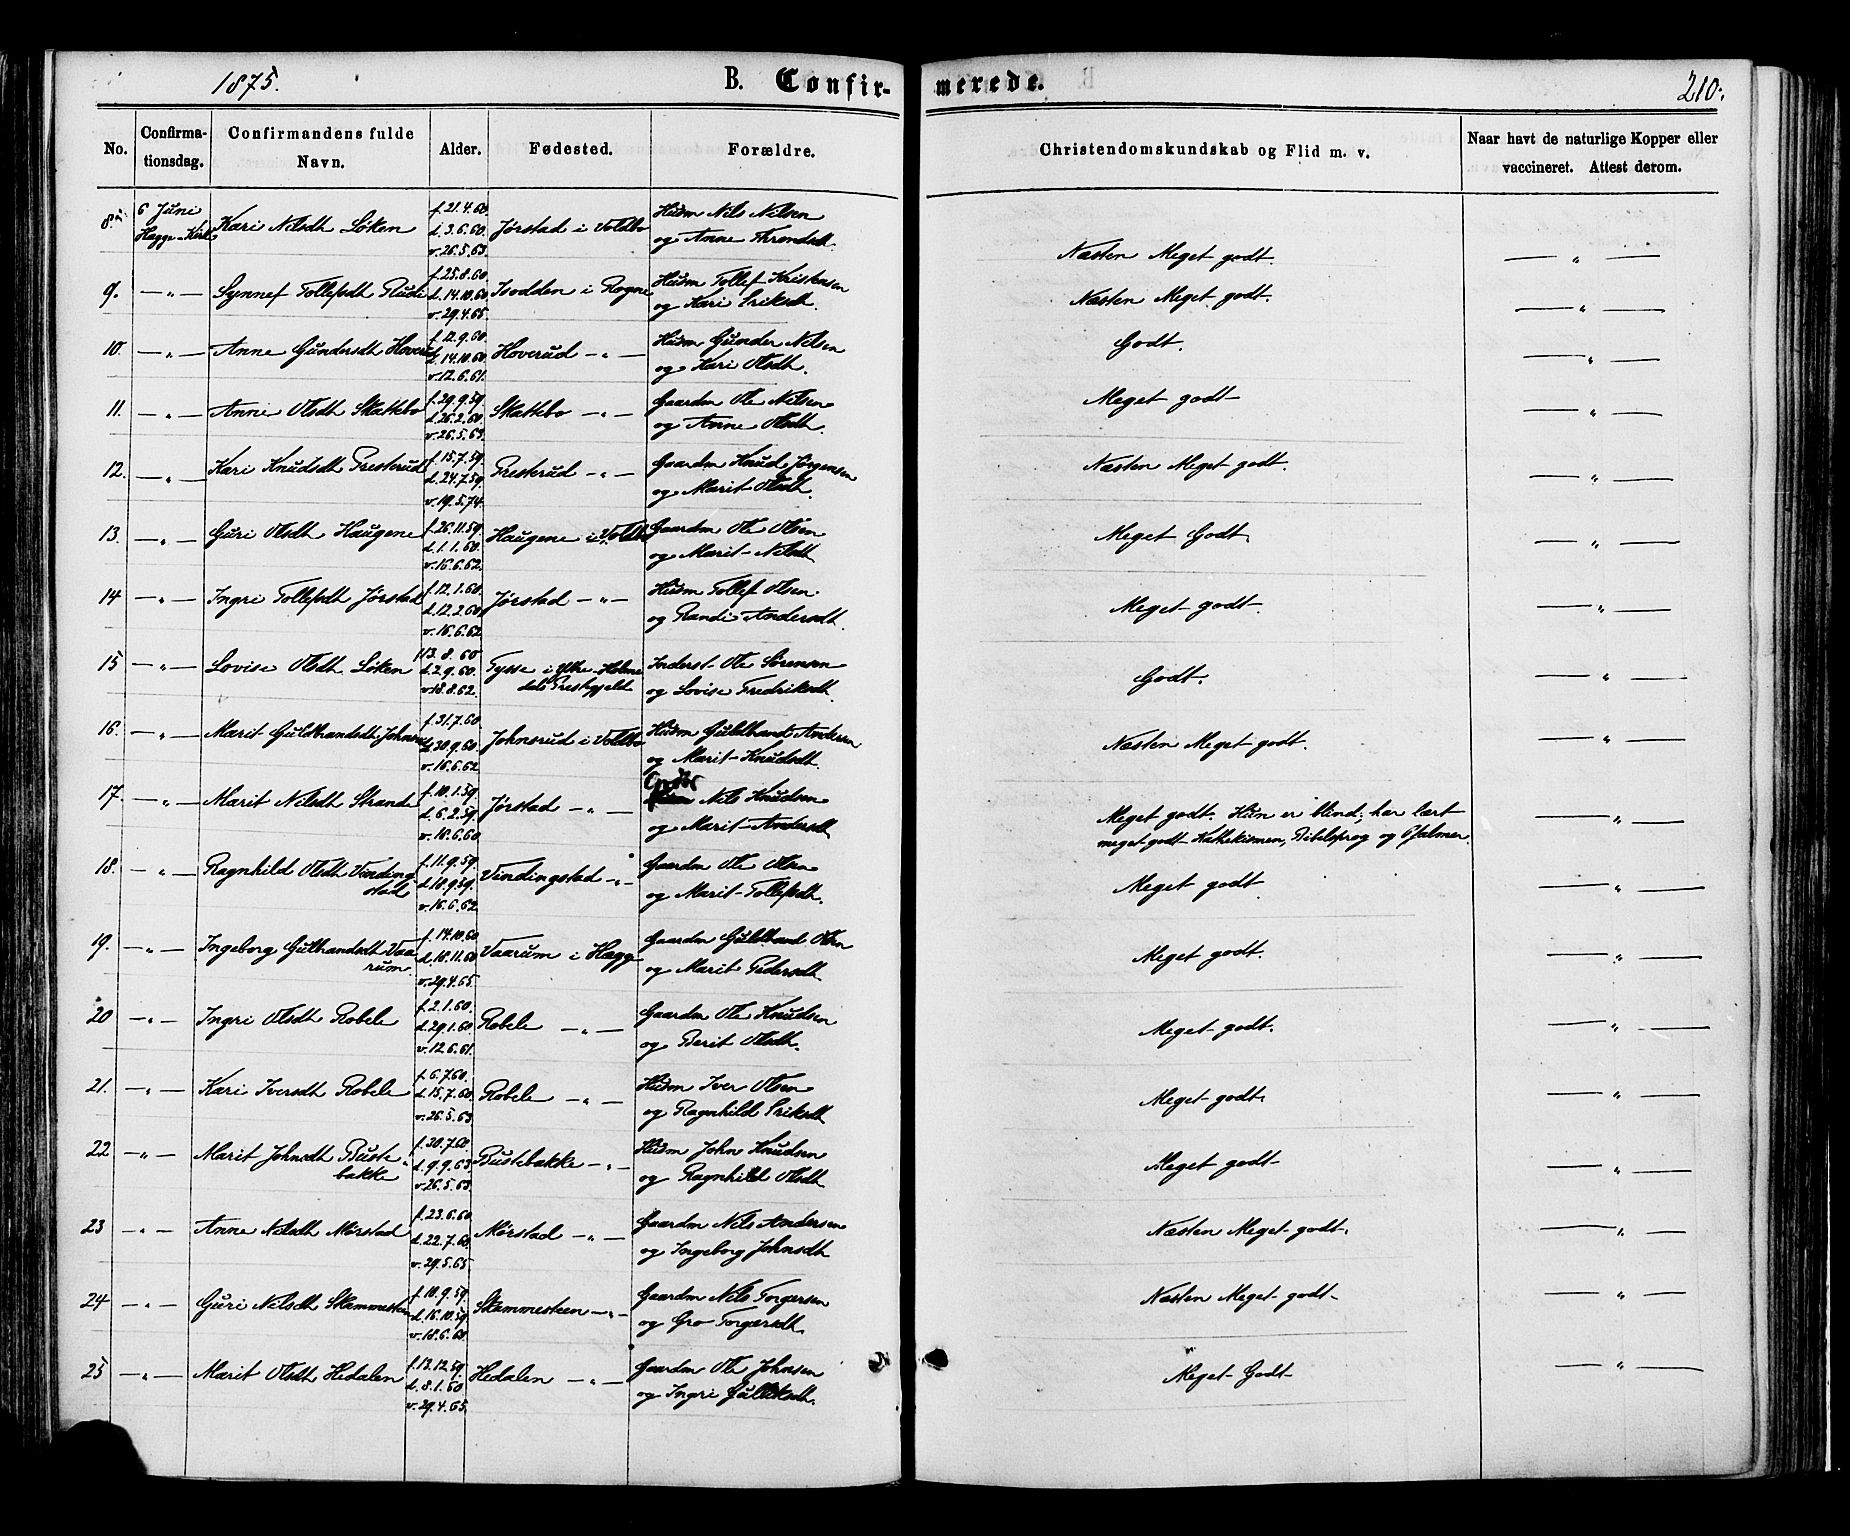 1875.
B. Confirmerede.
210.
No.
Confirma-
tionsdag.
Confirmandens fulde
Navn.
Alder.
Fødested.
Forældre.
Christendomskundskab og Flid m. v.
Naar havt de naturlige Kopper eller
vaccineret. Attest derom.
8. 6 Juni Kari Nilsdt Løken f. 21.4.60 Jørstad i Voldbo Husm Nils Nilsen
Hegge-Kirke d. 3.6.60. og Anne Throndsdt. Næsten Meget godt. — " —
v. 26.5.63.
9. — " — Synnef Tollefsdt Rudi f. 25.8.60 d. 14.10.60 i Rogne Husm Tollef Kristensen Næsten Meget godt. — " —
v. 29.4.65. og Kari Eriksdt.
10. — " — Anne Gundersdt Hoverud f. 12.9.60 d. 14.10.60 Hoverud — " — Husm Gunder Nilsen Godt. — " —
v. 12.6.61. og Kari Olsdt.
11. — " — Anne Olsdt Skattebo f. 29.9.59. d. 26.2.60. Skattebo — " — Gaardm Ole Nilsen Meget godt — " —
v. 26.5.63. og Anne Olsdt.
12. — " — Kari Knudsdt Presterud f. 15.7.59. d. 24.7.59. Presterud — " — Gaardm Knud Jørgensen Næsten Meget godt. — " —
v. 19.5.74. og Marit Olsdt.
13. — " — Guri Olsdt Haugene f. 26.11.59. d. 1.1.60. Haugene i Voldb Gaardm Ole Olsen Meget Godt. — " —
v. 16.6.62. og Marit Nilsdt
14 — " — Ingri Tollefsdt Jørstad f. 12.1.60. d. 12.2.60. Jørstad — " — Husm Tollef Olsen Meget godt. — " —
v. 16.6.62. og Randi Andersdt.
15 — " — Lovise Olsdt Løken f 13.8.60 d. 2.9.60. Tysse i Ytre-Holme Inderst Ole Sørensen Godt. — " —
v 18.8.62. dals Prestegjeld og Lovise Fredriksdt.
16. — " — Marit Guldbrandsdt Johnsrud f. 31.7.60. d. 30.9.60. Johnsrud i Voldbo Husm Guldbrand Andersen Næsten Meget godt. — " —
v. 16.6.62 og Marit Knudsdt.
17. — " — Marit Nilsdt Strande f. 10.1.59. d. 6.2.59. Jørstad — " — Nils Knudsen Meget godt. Hun er blind; har lært — " —
v. 16.6.60. og Marit Andersdt meget godt Kathekismen, Bibelsprog og Psalmer.
18. — " — Ragnhild Olsdt Vinding f. 11.9.59. Vindingstad — " — Gaardm Ole Olsen Meget godt. — " —
stad d. 18.9.59. v. 16.6.62 og Marit Tollefsdt.
19. — " — Ingeborg Gulbrandsdt Vaa f. 14.10.60 Vaarum i Hegge Gaardm Guldbrand Olsen Meget godt. — " —
rum. d. 18.11.60 v. 29.4.65. og Marit Pedersdt
20 — " — Ingri Olsdt Robele f. 2.1.60. d. 29.1.60 Robele — " — Gaardm Ole Knudsen Meget godt. — " —
v. 12.6.61. og Berit Olsdt.
21. — " — Kari Iversdt Robele f. 6.7.60. d. 15.7.60 Robele — " — Husm Iver Olsen Meget godt. — " —
v. 26.5.63 og Ragnhild Eriksdt
22 — " — Marit Johnsdt Buste f. 30.7.60 Bustebakke — " — Husm John Knudsen Meget godt — " —
bakke d. 9.9.63 v. 26.5.63. og Ragnhild Olsdt
23 — " — Anne Nilsdt Mørstad f. 23.6.60. d. 22.7.60 Mørstad — " — Gaardm Nils Andersen Næsten Meget godt. — " —
v. 29.5.65 og Ingeborg Johnsdt
24 — " — Guri Nilsdt Skammesteen f. 10.9.59. d. 16.10.59 Skammesteen — " — Gaardm Nils Torgersen Næsten Meget godt — " —
v. 18.6.60. og Gro Torgersdt.
25 — " — Marit Olsdt Hedalen f. 13.12.59. d. 8.1.60 Hedalen — " — Gaardm Ole Johnsen Meget Godt — " —
v. 29.4.65. og Ingri Gulliksdt.